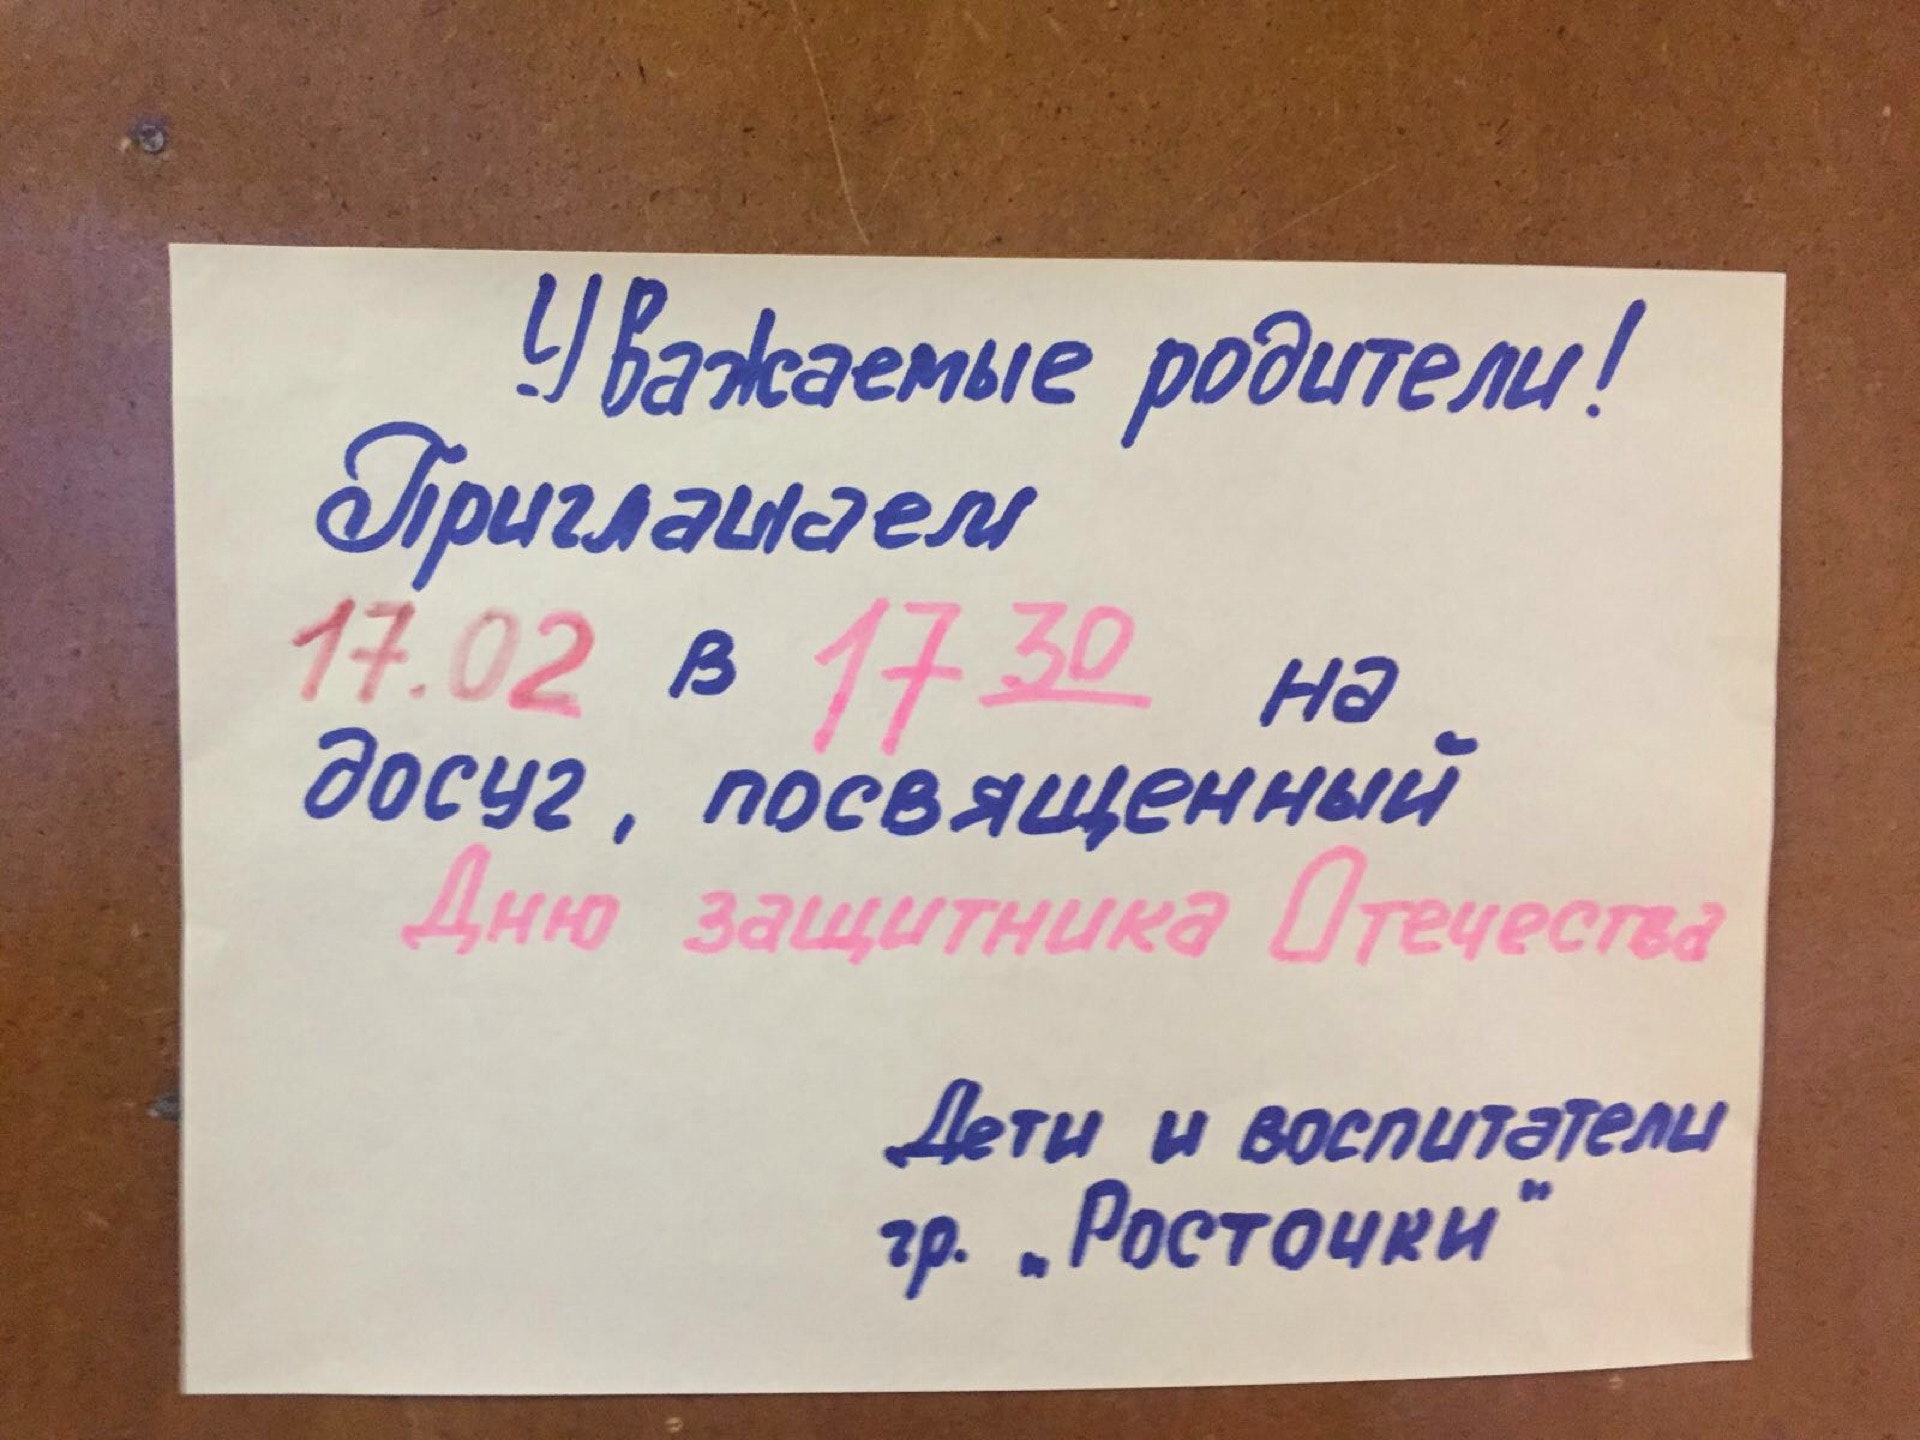 Уважаемые родители!
Приглашаем
17.02 в 17 30 на
досуг, посвященный
Дню защитника Отечества
Дети и воспитатели
гр. „Росточки"